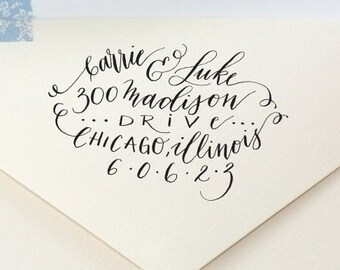 Carrie & Luke
300 Madison
... DRIVE ...
CHICAGO, illinois
6·0·6·2·3